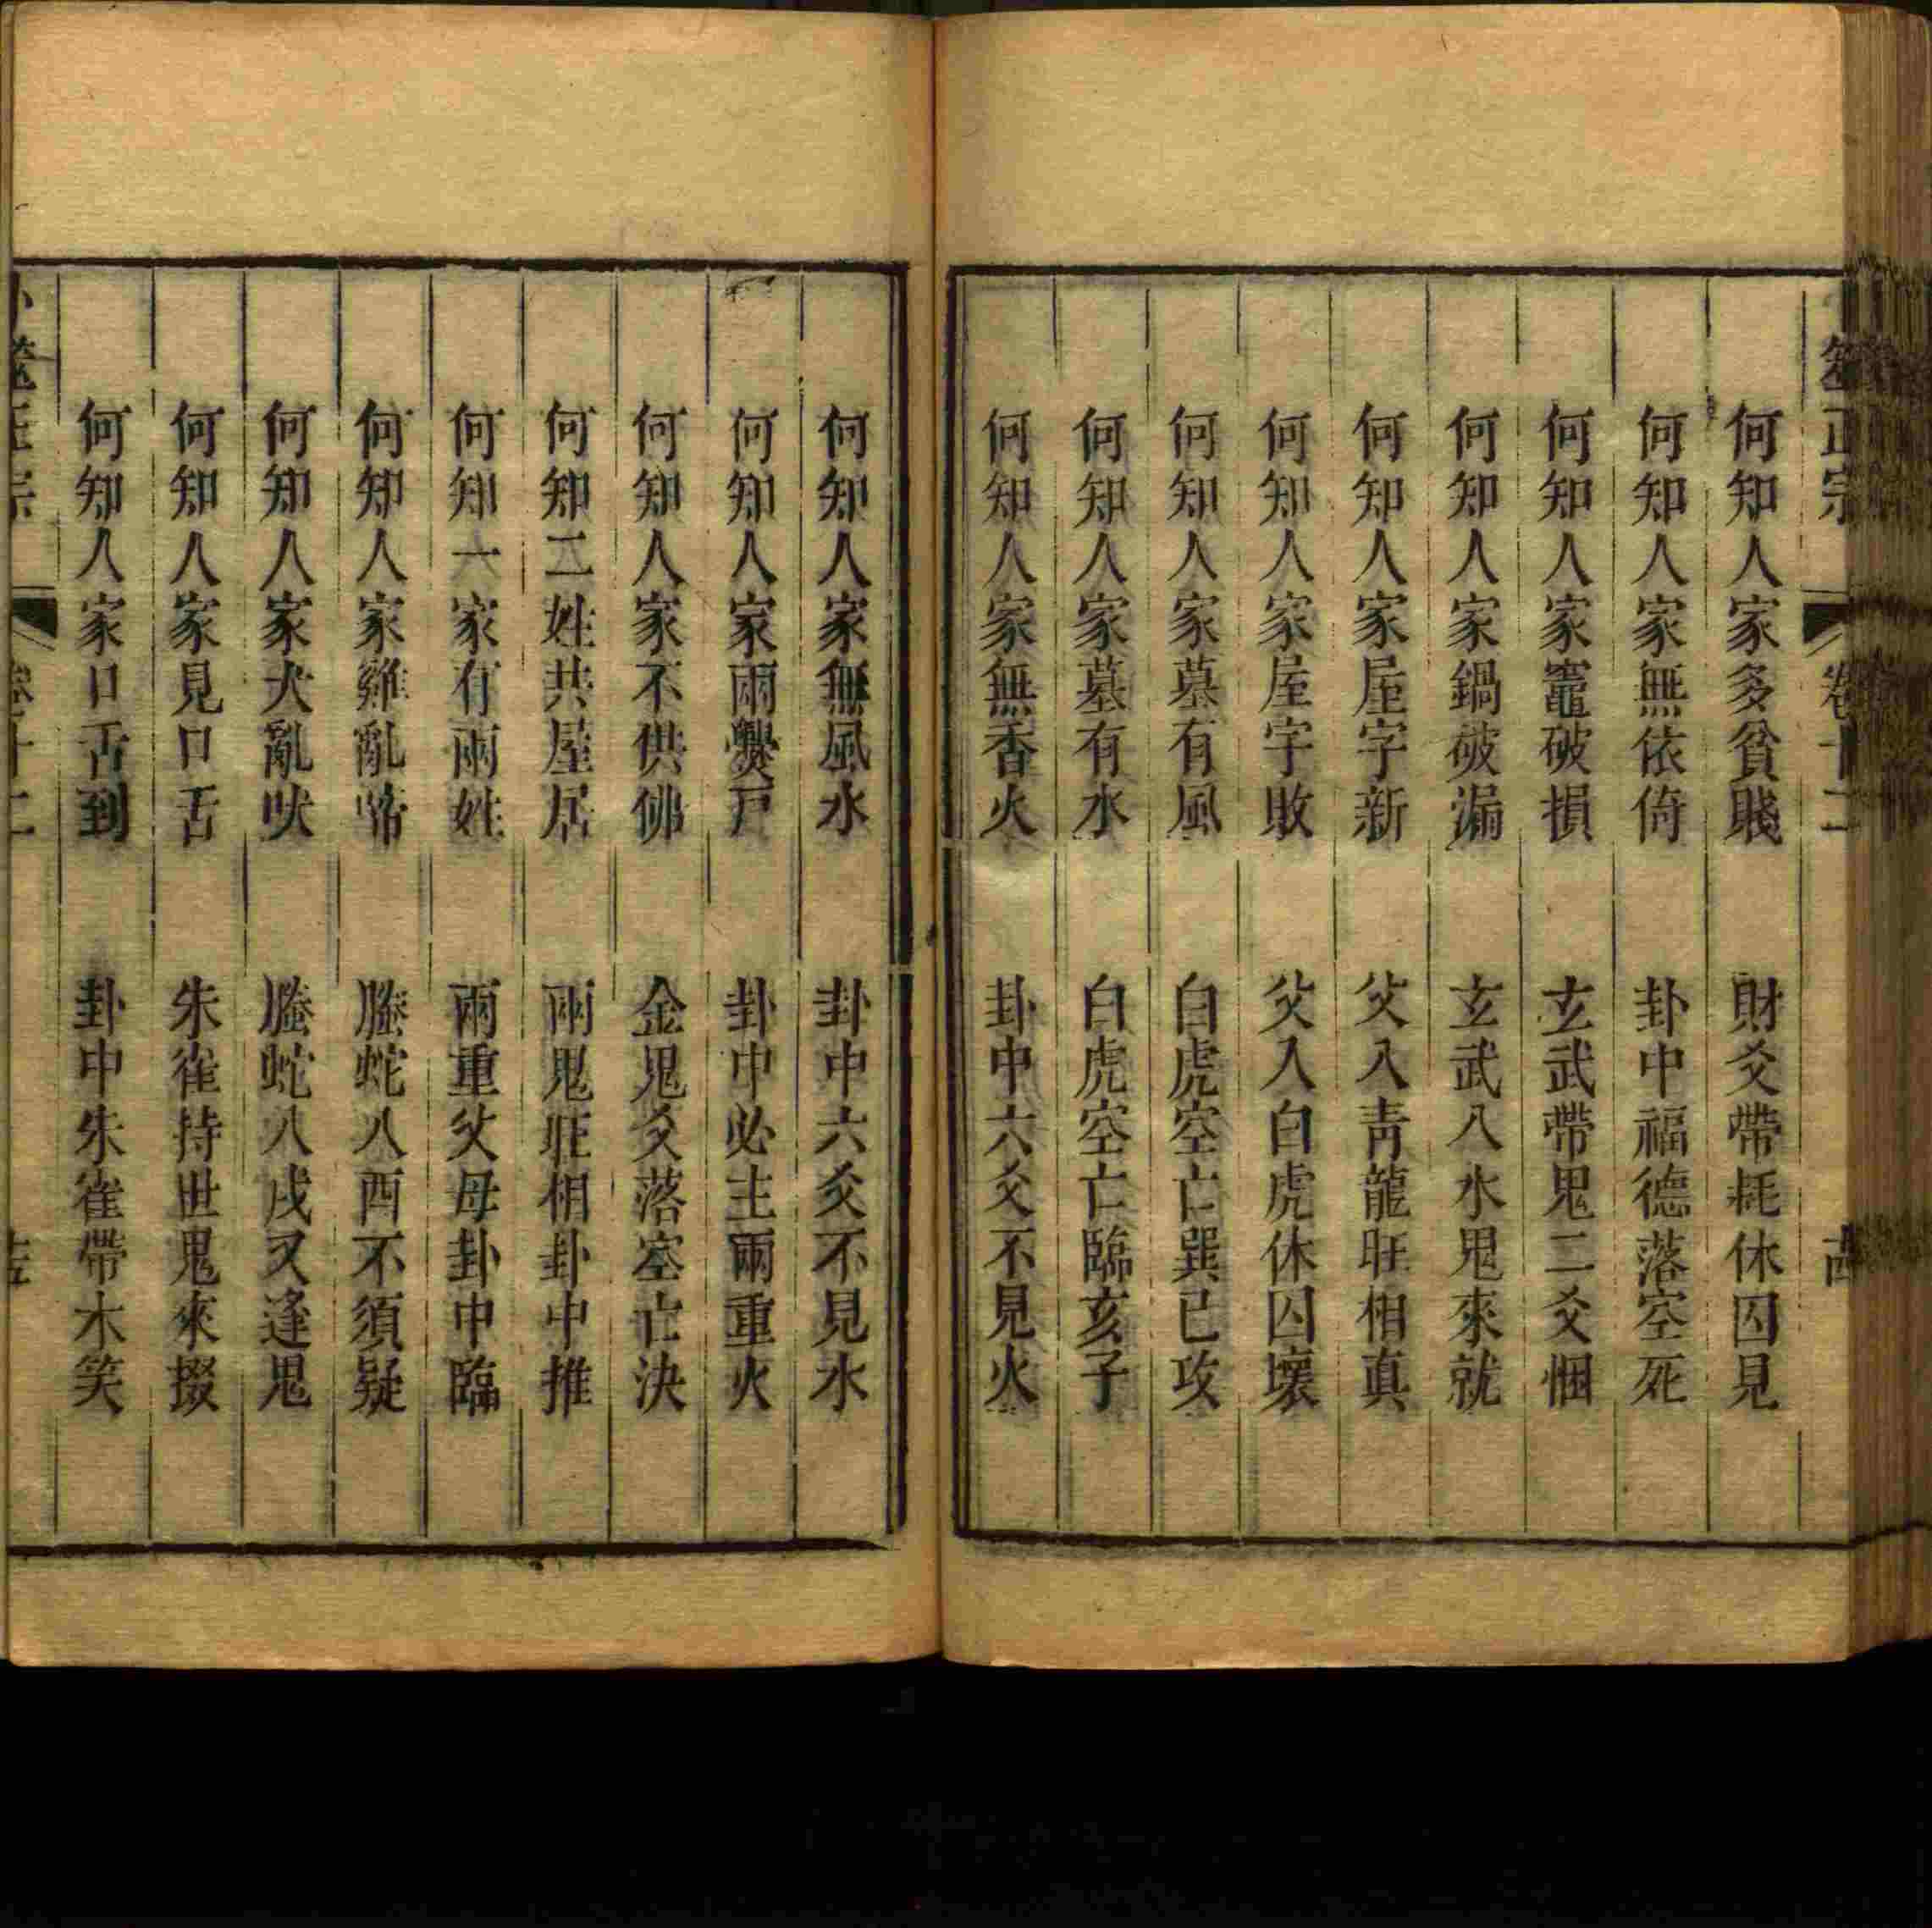 筮正宗 卷十二 古
何知人家多貧賤 財爻帶耗休囚見
何知人家無依倚 卦中福德落空死
何知人家竈破損 玄武帶鬼二爻悃
何知人家鍋破漏 玄武入水鬼來就
何知人家屋宇新 父入青龍旺相真
何知人家屋宇敗 父入白虎休囚壞
何知人家墓有風 白虎空亡巽巳攻
何知人家墓有水 白虎空亡臨亥子
何知人家無香火 卦中六爻不見火
何知人家無風水 卦中六爻不見水
何知人家兩爨戶 卦中必主兩重火
何知人家不供佛 金鬼爻落空亡決
何知二姓共屋居 兩鬼旺相卦中推
何知一家有兩姓 兩重父母卦中臨
何知人家雞亂啼 螣蛇入酉不須疑
何知人家犬亂吠 螣蛇入戌又逢鬼
何知人家見口舌 朱雀持世鬼來掇
何知人家口舌到 卦中朱雀帶木笑
卜筮正宗 卷十二